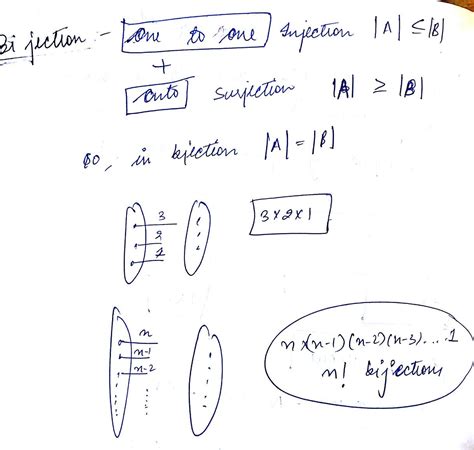 Bijection - one to one Injection |A| ≤ |B|
+
onto Surjection |A| ≥ |B|
so, in bijection |A| = |B|
3
2
1
3×2×1
n
n-1
n-2
n×(n-1)(n-2)(n-3)....1
n! bijections